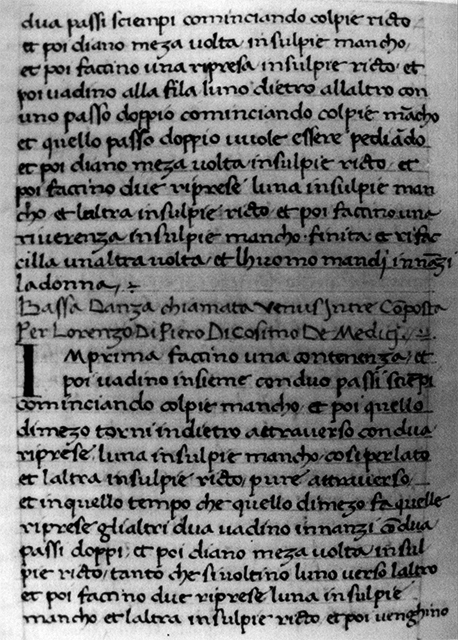 dua passi sciempi cominciando colpie ricto
et poi diano meza volta insulpie mancho
et poi faccino una ripresa insulpie ricto et
poi vadino alla fila luno dietro allaltro con
uno passo doppio cominciando colpie mācho
et quello passo doppio vuole essere pediādo
et poi diano meza volta insulpie ricto et
poi faccino due riprese luna insulpie man
cho et laltra insulpie ricto et poi faccino una
riverenza insulpie mancho finita et rifac
cilla unaltra volta et lhuomo mandj innāzi
ladonna
Bassa Danza chiamata Venus Intre Cōposta
Per Lorenzo Di Piero Di Cosimo De Medicj
IMprima faccino una contenenza et
poi vadino insieme conduo passi sciēpi
cominciando colpie mancho et poi quello
dimezo torni indietro attraverso condua
riprese luna insulpie mancho cosi perlato
et laltra insulpie ricto pure attraverso
et inquello tempo che quello dimezo fa quelle
riprese glialtri dua vadino innanzi cōdua
passi doppi et poi diano meza volta insul
pie ricto tanto che si voltino luno verso laltro
et poi faccino due riprese luna insulpie
mancho et laltra insulpie ricto et poi venghino